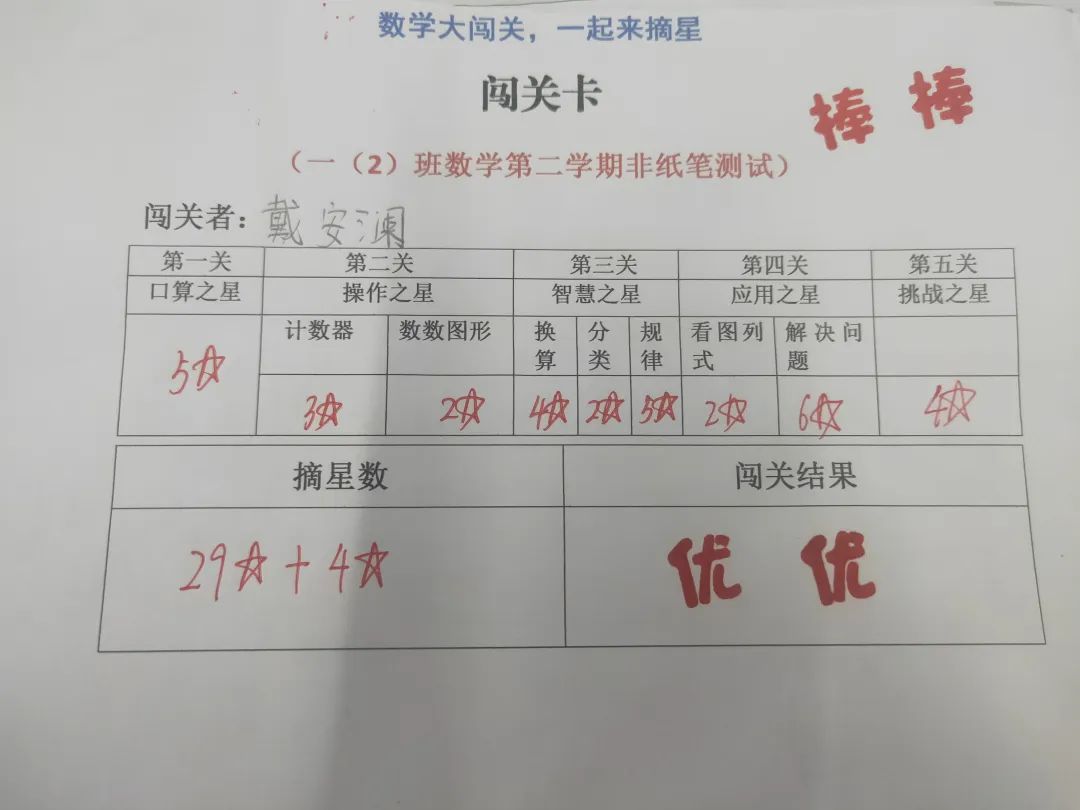 数学大闯关，一起来摘星
闯关卡
棒 棒
（一（2）班数学第二学期非纸笔测试）
闯关者：戴安澜
第一关 第二关 第三关 第四关 第五关
口算之星 操作之星 智慧之星 应用之星 挑战之星
计数器 数数图形 换算 分类 规律 看图列式 解决问题
5☆ 3☆ 2☆ 4☆ 2☆ 5☆ 2☆ 6☆ 4☆
摘星数 闯关结果
29☆+4☆ 优 优